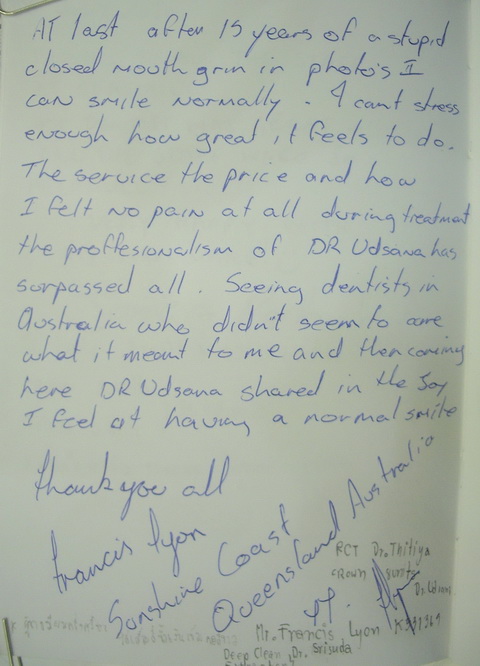 AT last after 15 years of a stupid
closed mouth grin in photo's I
can smile normally. I can't stress
enough how great it feels to do.
The service the price and how
I felt no pain at all during treatment
the proffesionalism of DR Udsana has
surpassed all. Seeing dentists in
Australia who didn't seem to care
what it meant to me and then coming
here DR Udsana shared in the Joy
I feel at having a normal smile
thank you all
Francis Lyon
Sunshine Coast
Queensland Australia
RCT Dr. Thitiya
crown
Mr. Francis Lyon
Deep Clean Dr. Srisuda